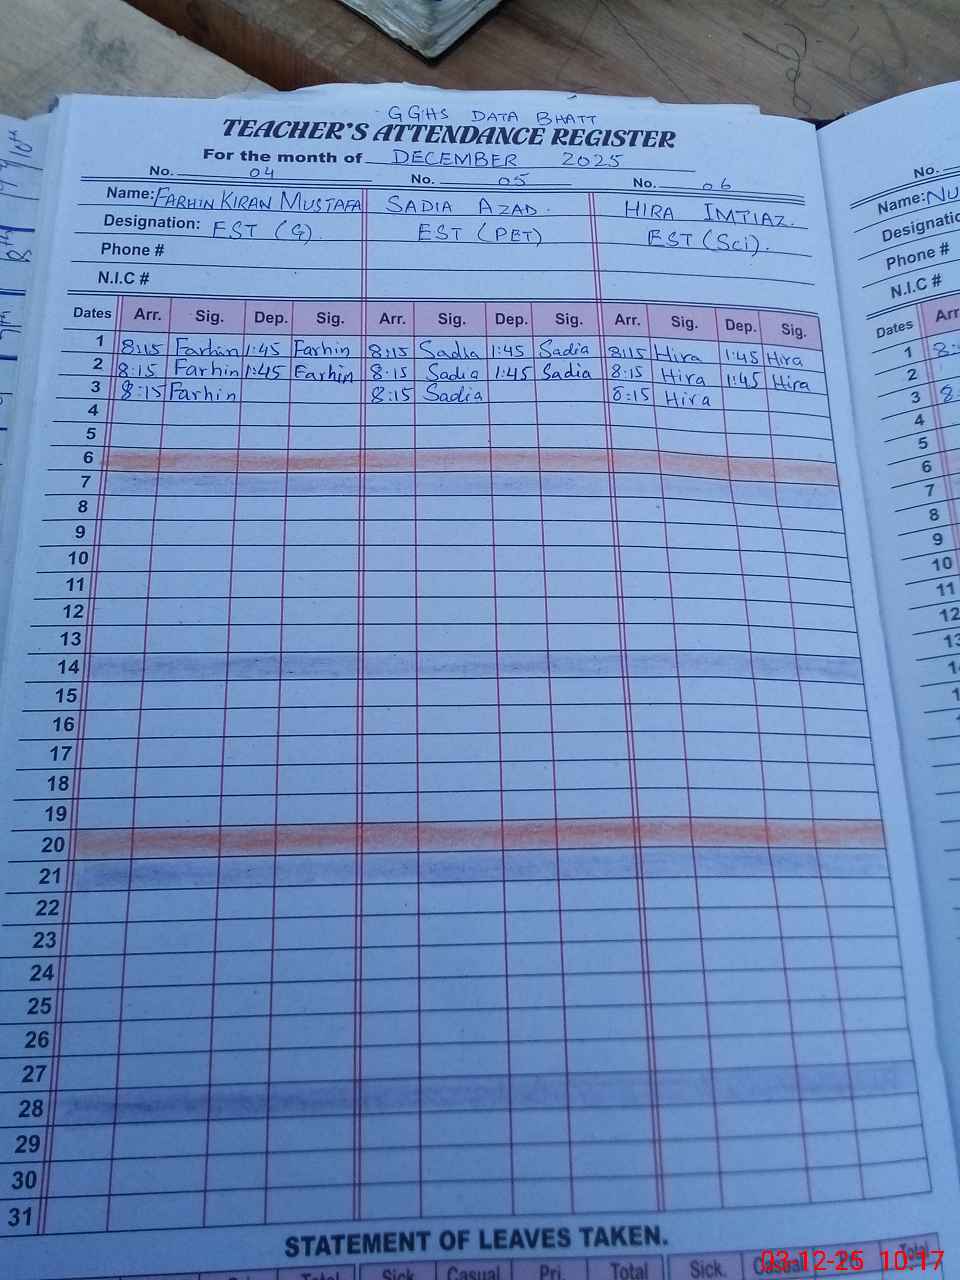 GGHS DATA BHATT
TEACHER'S ATTENDANCE REGISTER
For the month of DECEMBER 2025
No. 04 No. 05 No. 06
Name: FARHIN KIRAN MUSTAFA SADIA AZAD. HIRA IMTIAZ.
Designation: EST (G). EST (PET) EST (Sci).
Phone #
N.I.C #
Dates Arr. Sig. Dep. Sig. Arr. Sig. Dep. Sig. Arr. Sig. Dep. Sig.
1 8:15 Farhin 1:45 Farhin 8:15 Sadia 1:45 Sadia 8:15 Hira 1:45 Hira
2 8:15 Farhin 1:45 Farhin 8:15 Sadia 1:45 Sadia 8:15 Hira 1:45 Hira
3 8:15 Farhin 8:15 Sadia 8:15 Hira
4
5
6
7
8
9
10
11
12
13
14
15
16
17
18
19
20
21
22
23
24
25
26
27
28
29
30
31
STATEMENT OF LEAVES TAKEN.
Total Sick Casual Pri. Total Sick. Casual Total
No.
Name: NU
Designatio
Phone #
N.I.C #
Dates Arr
1 8:
2
3 8:
4
5
6
7
8
9
10
11
12
03-12-25 10:17